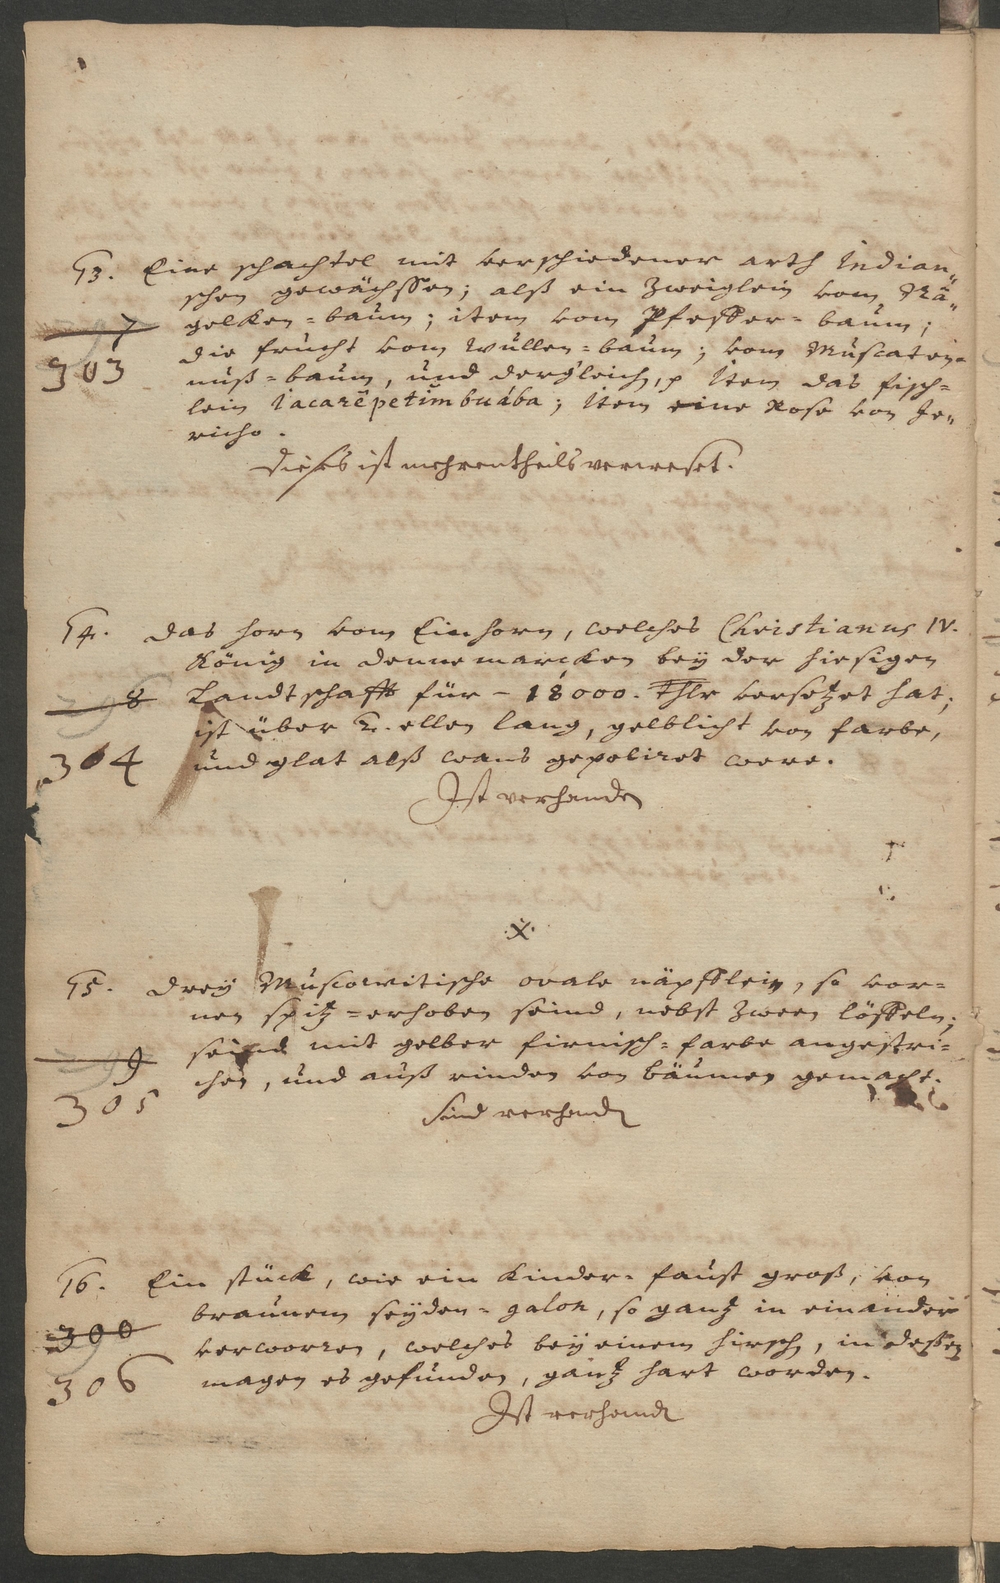 13. Eine schachtel mit verschiedener arth Indian„
schen gewächssen; alß ein Zweiglein vom Nä„
7 gelken=baum; item vom Pfeffer=baum;
303 die frucht vom wullen=baum; vom Muscaten=
nuß=baum, und dergleich, Item das fisch=
lein Iacarepetimbuába; Item eine Rose von Je„
richo.
Dieses ist mehrentheils verweset.
14. Das horn vom Einhorn, welches Christianus IV.
König in dennemarcken bey der hiesigen
8 Landtschafft für - 18000. Thlr versetzet hat;
ist über 2. ellen lang, gelblicht von farbe,
304 und glat alß wans gepoliret were.
Ist verhanden
.x.
15. Drey Muscowitische ovale näpfflein, so vor=
nen spitz=erhoben seind, nebst zween löffeln;
9 seind mit gelber firnisch=farbe angestri=
chen, und auß rinden von bäumen gemacht.
305
Sind verhand
16. Ein stück, wie ein Kinder=faust groß, von
braunem seyden=galon, so gantz in einander
300 verworren, welches bey einem hirsch, in deßen
306 magen es gefunden, gantz hart worden.
Ist verhand